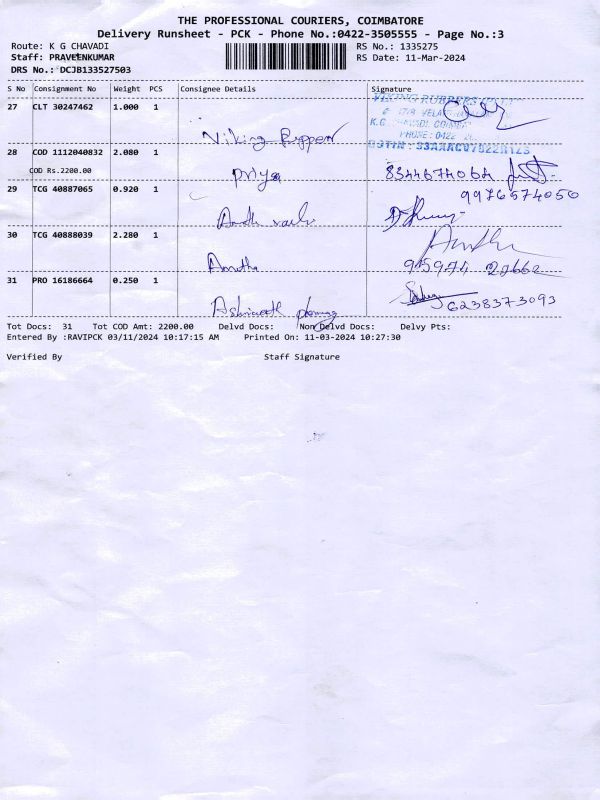 THE PROFESSIONAL COURIERS, COIMBATORE
Delivery Runsheet - PCK - Phone No.:0422-3505555 - Page No.:3
Route: K G CHAVADI RS No.: 1335275
Staff: PRAVEENKUMAR RS Date: 11-Mar-2024
DRS No.: DCJB133527503
S No Consignment No Weight PCS Consignee Details Signature
27 CLT 30247462 1.000 1
VIKING RUBBERS
PHONE: 0422
Viking
28 COD 1112040832 2.080 1
COD Rs.2200.00 Priya 8344674064
29 TCG 40887065 0.920 1 9976574050
30 TCG 40888039 2.280 1
Amutha 915974 22662
31 PRO 16186664 0.250 1
6238373093
Tot Docs: 31 Tot COD Amt: 2200.00 Delvd Docs: Non Delvd Docs: Delvy Pts:
Entered By :RAVIPCK 03/11/2024 10:17:15 AM Printed On: 11-03-2024 10:27:30
Verified By Staff Signature